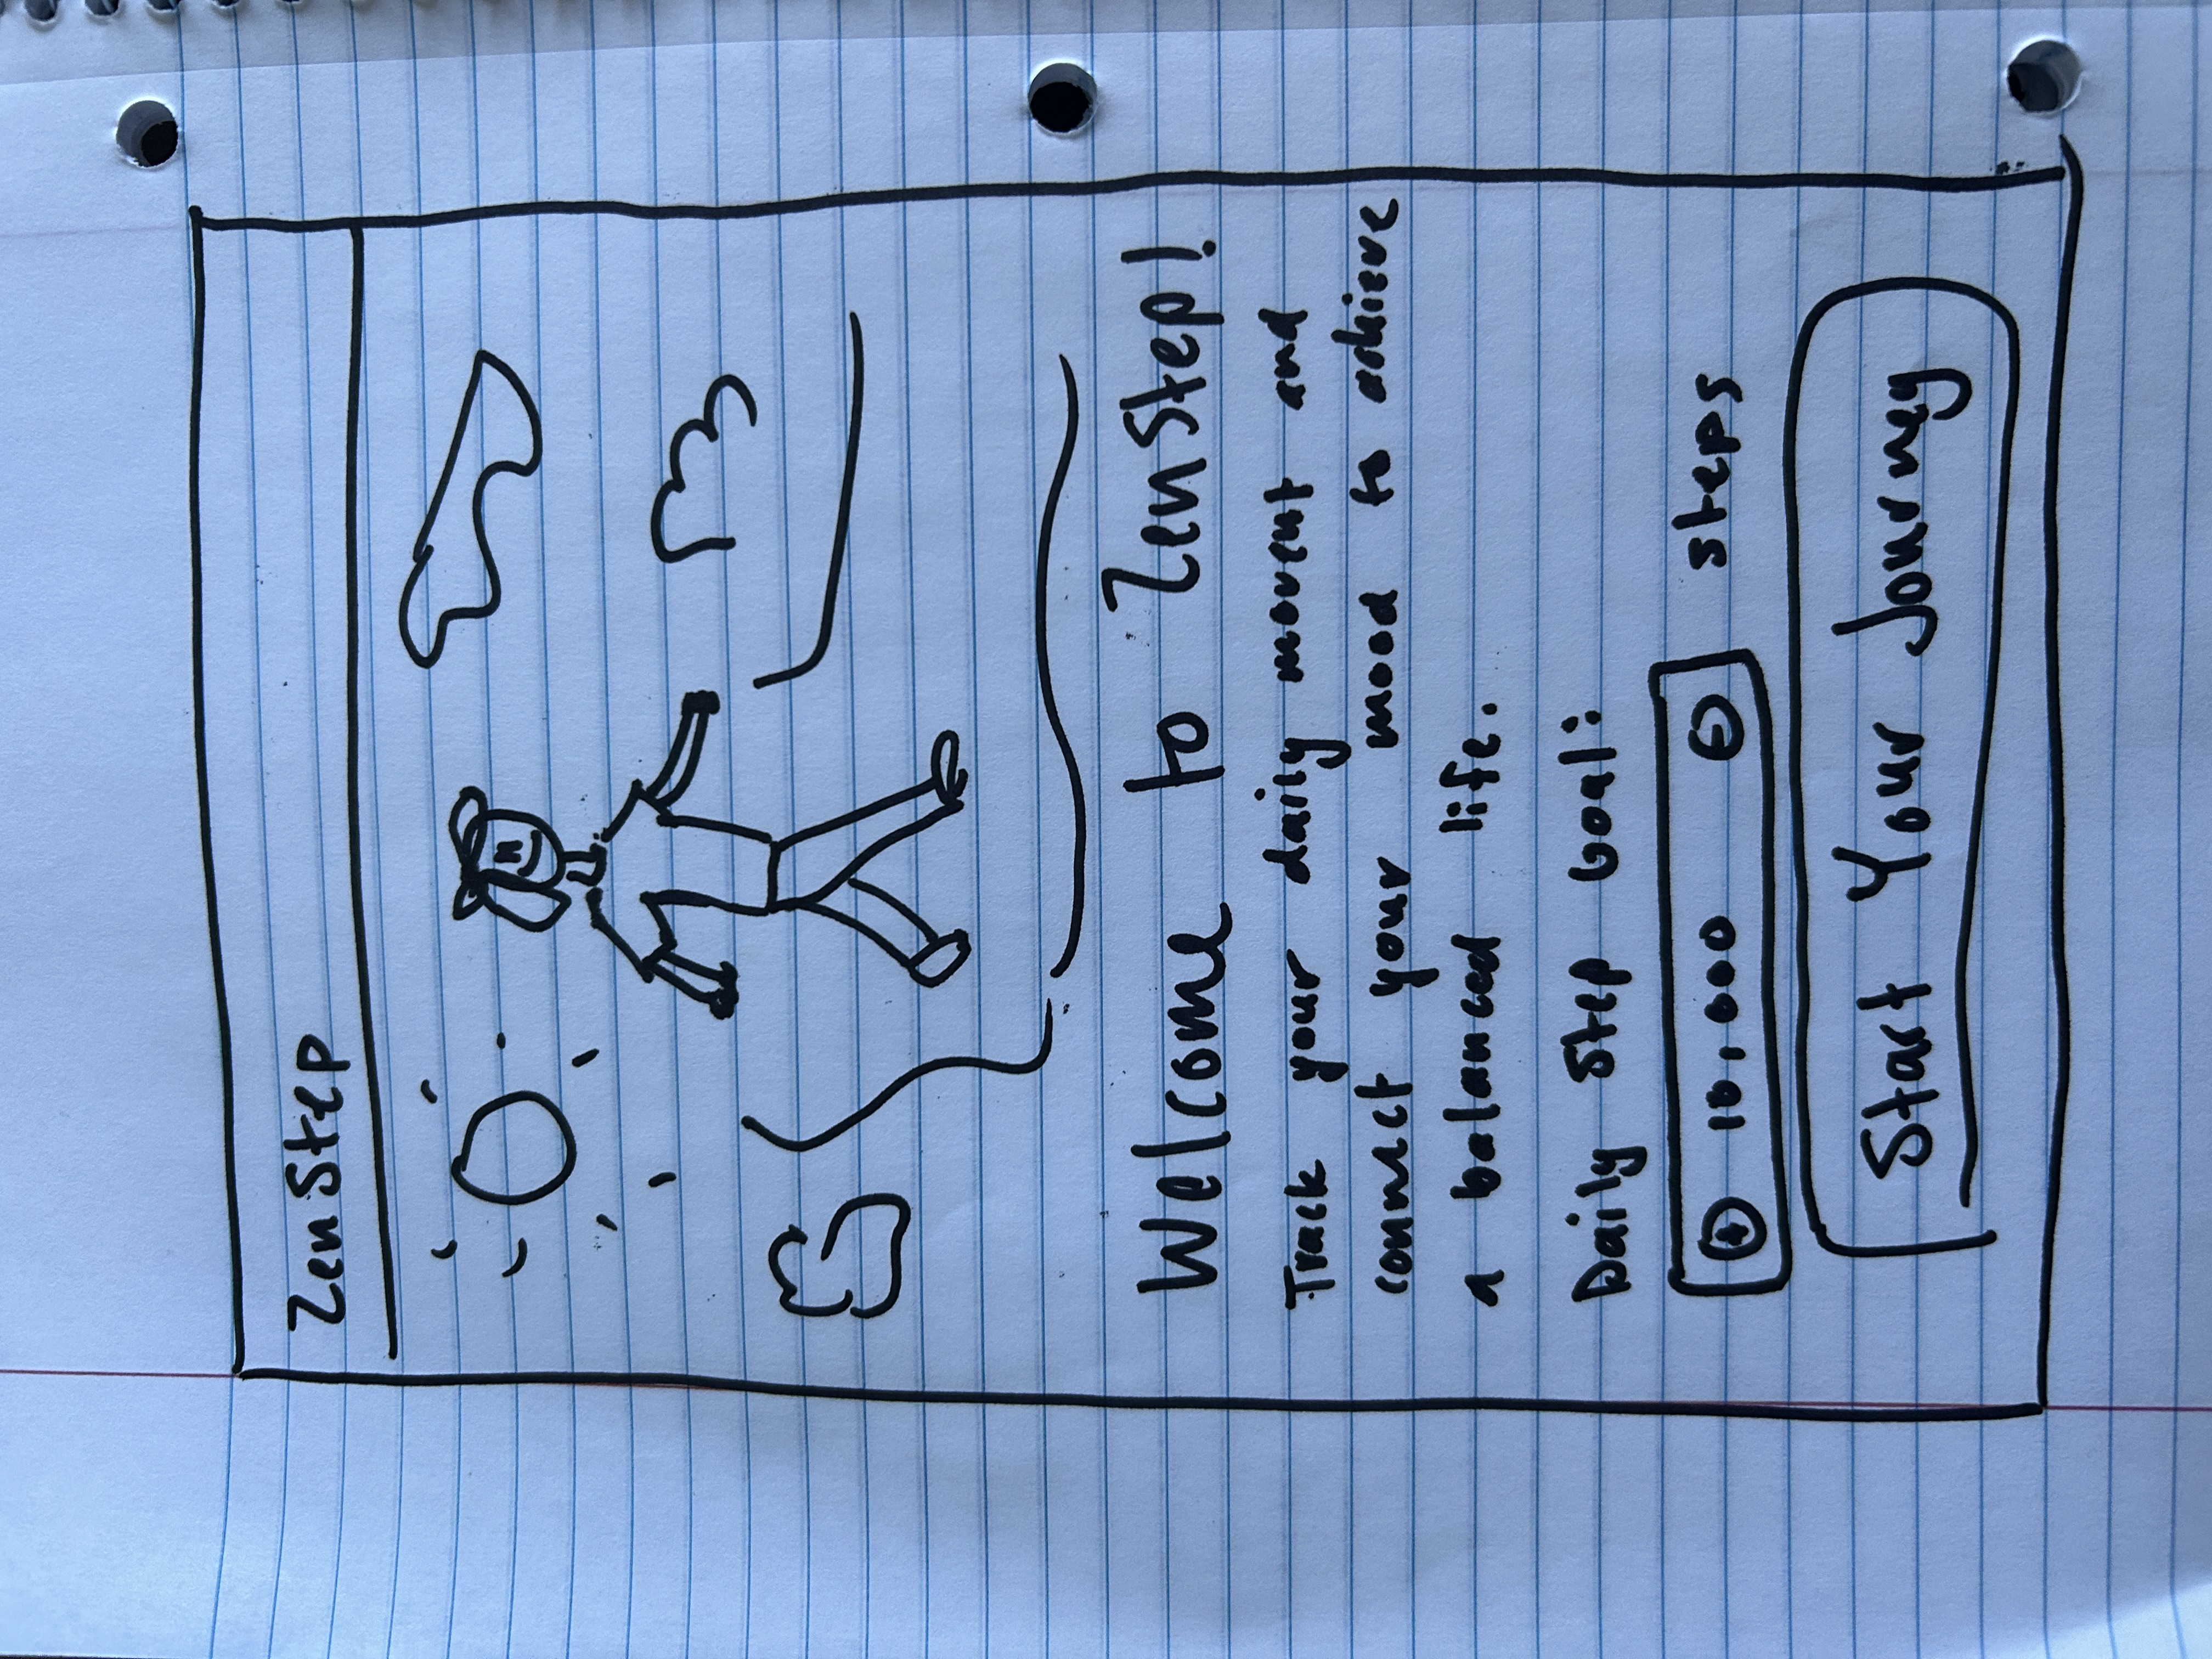 ZenStep
Welcome to ZenStep!
Track your daily movent and
connect your mood to achieve
a balanced life.
Daily Step Goal:
+ 10,000 - steps
Start Your Journey